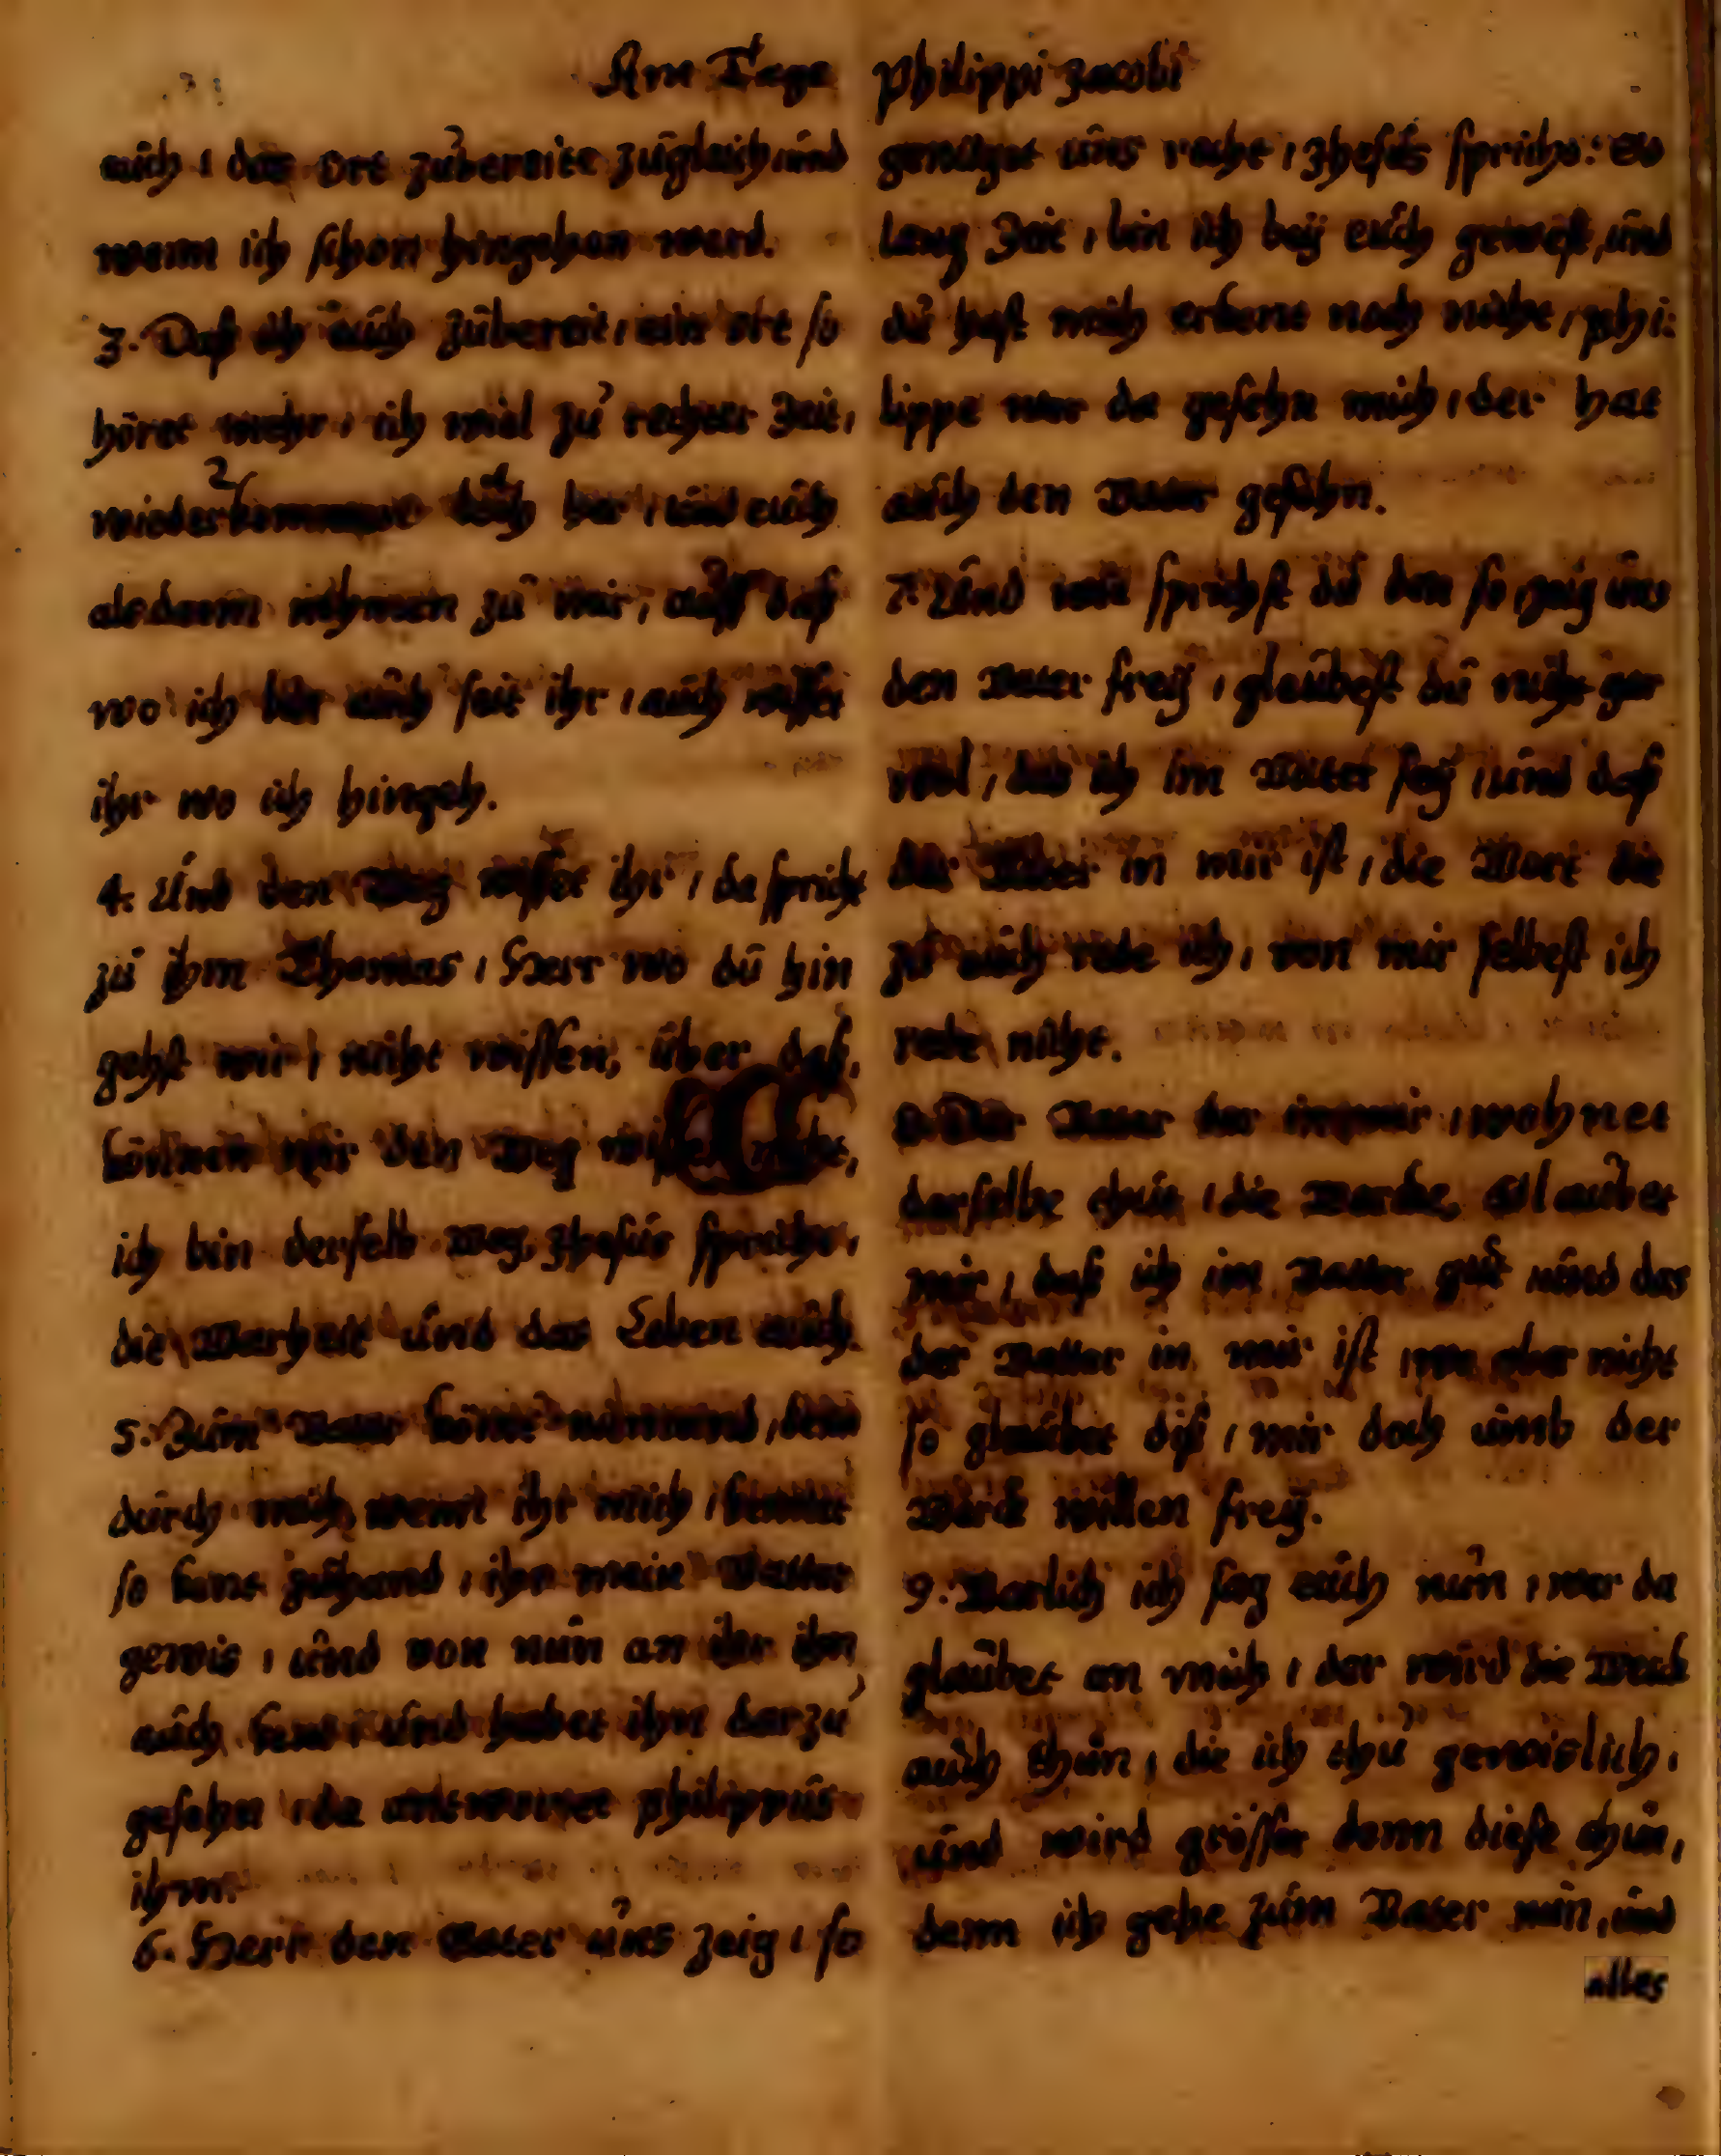 Am Tage Philippi Jacobi
euch / das ort zubereite zugleich / und
wenn ich schon hingehen werd.
3. Daß ich euch zubereit / ein ort so
höret mehr / ich wiel zu rechter Zeit /
wieder doch her / und euch
alsdann nehmen zu mir / auff daß
wo ich bin auch seit ihr / auch wisset
ihr wo ich hingeh.
4. Und den Weg wisset ihr / da spricht
zu ihm Thomas / Herr wo du hin
gehst wir / nicht wissen, über daß,
können wir den Weg
ich bin derselb Weg, Jhesus spricht,
die Warheit und das Leben auch.
5. Zum Vater kömt niemand / denn
durch mich, wenn ihr mich / kennet
so kent zuhand / ihr mein Vatter
gewis / und von nun an ihr ihn
auch kent / und habet ihn darzu
gesehen / da antwortet Philippus
ihm.
6. Herr den Vater uns zeig / so
genüget uns recht / Jhesus spricht: so
lang Zeit / bin ich bey euch gewest, und
du hast mich erkent noch nicht / Phi:
lippe wer da gesehn mich / der hat
auch den Vater gesehn.
7. Und wie sprichst du den so / zeig uns
den Vater frey / glaubest du nicht gar
wol / das ich im Vater sey / und daß
der Vater in mir ist / die Wort die
zu euch rede ich / von mir selbest ich
rede nicht.
8. Der Vater der in mir / wohnet
derselbe thut / die Wercke, Glaubet
mir / daß ich im Vatter und das
der Vatter in mir ist / wo aber nicht
so glaubet diß / mir doch umb der
Werck willen frey.
9. Warlich ich sag euch nun / wer da
glaubet an mich / der wird die Werck
auch thun / die ich thu gewislich /
und wird grösser denn dieße thun,
denn ich gehe zum Vater nun, und
alles